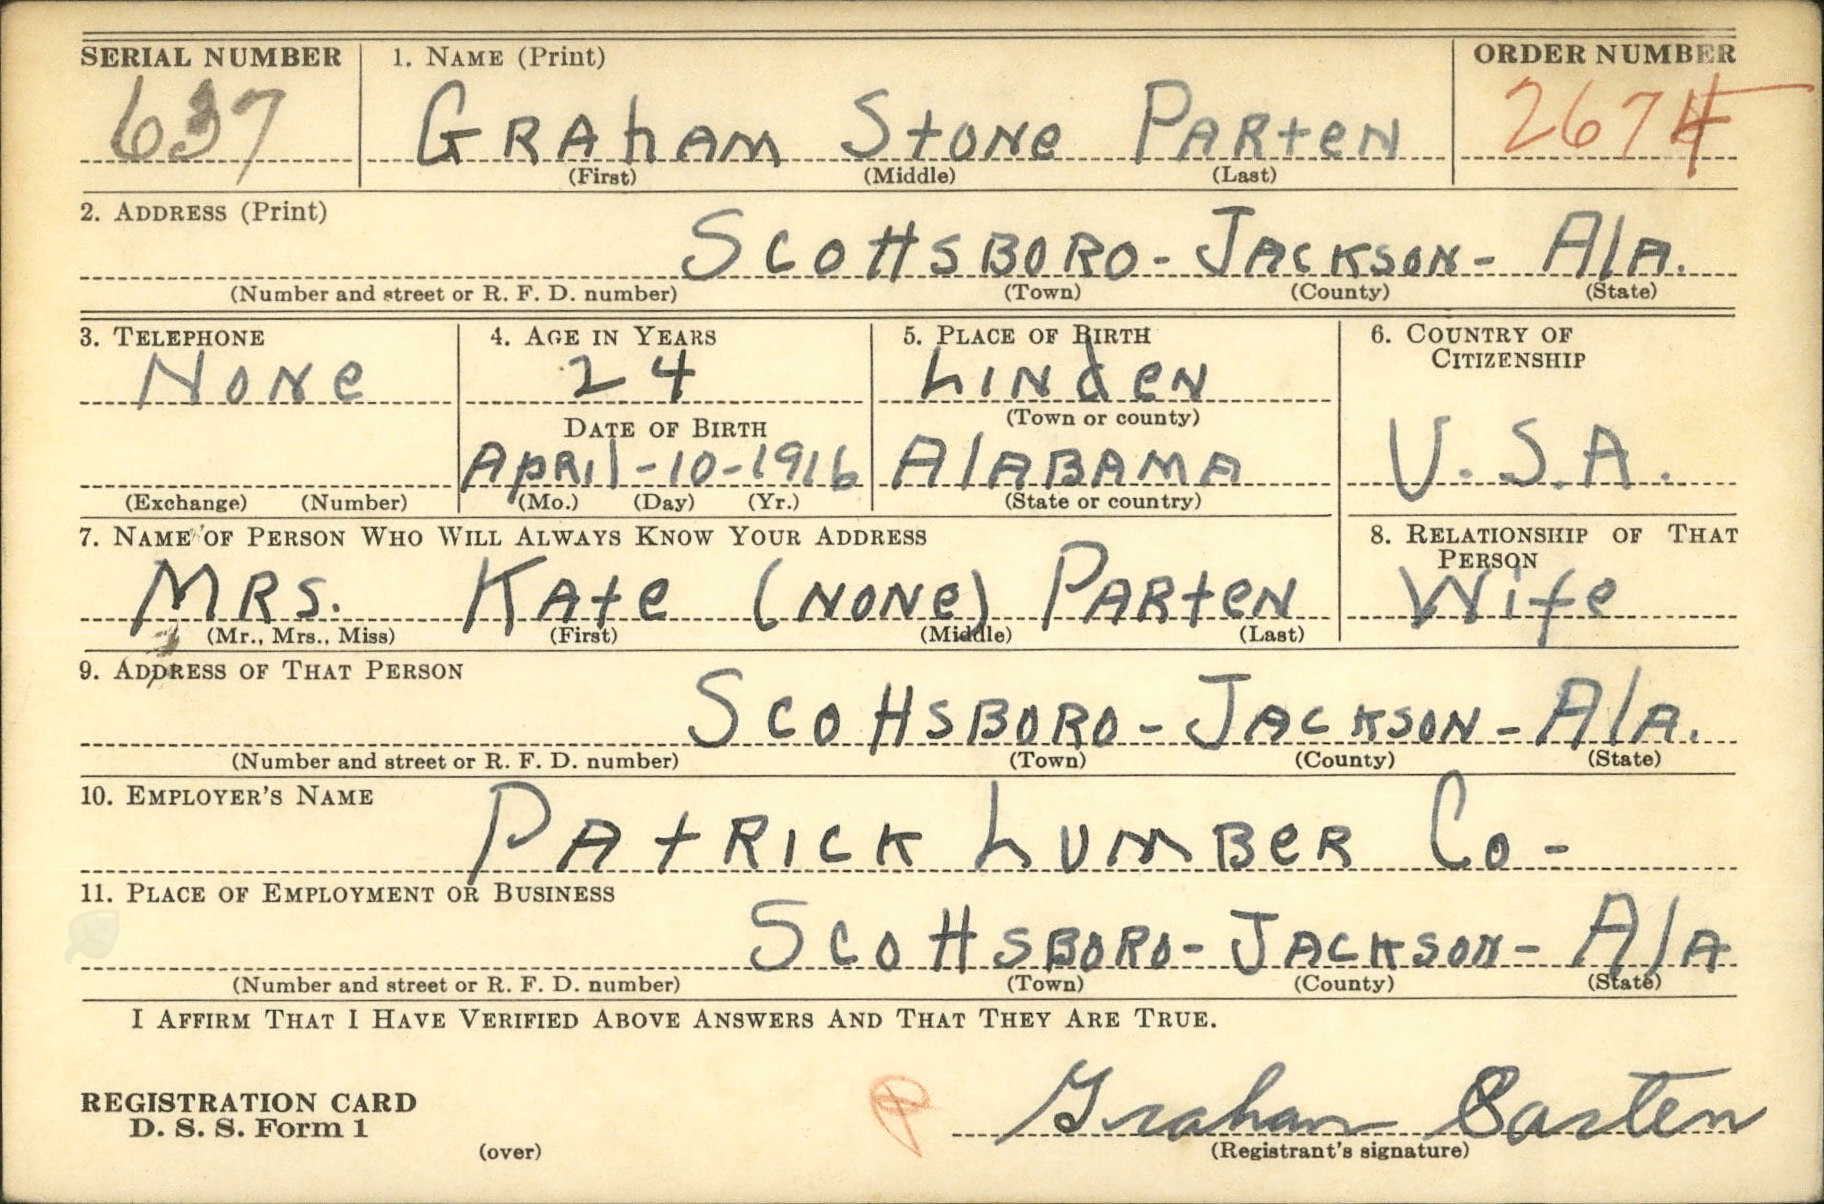 SERIAL NUMBER 1. NAME (Print) ORDER NUMBER
637 GRAhAM StONe PARteN 2674
(First) (Middle) (Last)
2. ADDRESS (Print)
ScottsBORO - JACKSON - AlA.
(Number and street or R. F. D. number) (Town) (County) (State)
3. TELEPHONE 4. AGE IN YEARS 5. PLACE OF BIRTH 6. COUNTRY OF CITIZENSHIP
NoNe 24 LINdeN
(Town or county)
DATE OF BIRTH
ApRil-10-1916 AlABAMA U.S.A.
(Exchange) (Number) (Mo.) (Day) (Yr.) (State or country)
7. NAME OF PERSON WHO WILL ALWAYS KNOW YOUR ADDRESS 8. RELATIONSHIP OF THAT PERSON
MRS. KAte (NONe) PARteN Wife
(Mr., Mrs., Miss) (First) (Middle) (Last)
9. ADDRESS OF THAT PERSON
ScottsBORO - JACKSON - AlA.
(Number and street or R. F. D. number) (Town) (County) (State)
10. EMPLOYER'S NAME
PAtRICK LUMBeR Co-
11. PLACE OF EMPLOYMENT OR BUSINESS
ScottsBORO - JACKSON - AlA
(Number and street or R. F. D. number) (Town) (County) (State)
I AFFIRM THAT I HAVE VERIFIED ABOVE ANSWERS AND THAT THEY ARE TRUE.
REGISTRATION CARD
D. S. S. Form 1
(over)
Graham Parten
(Registrant's signature)